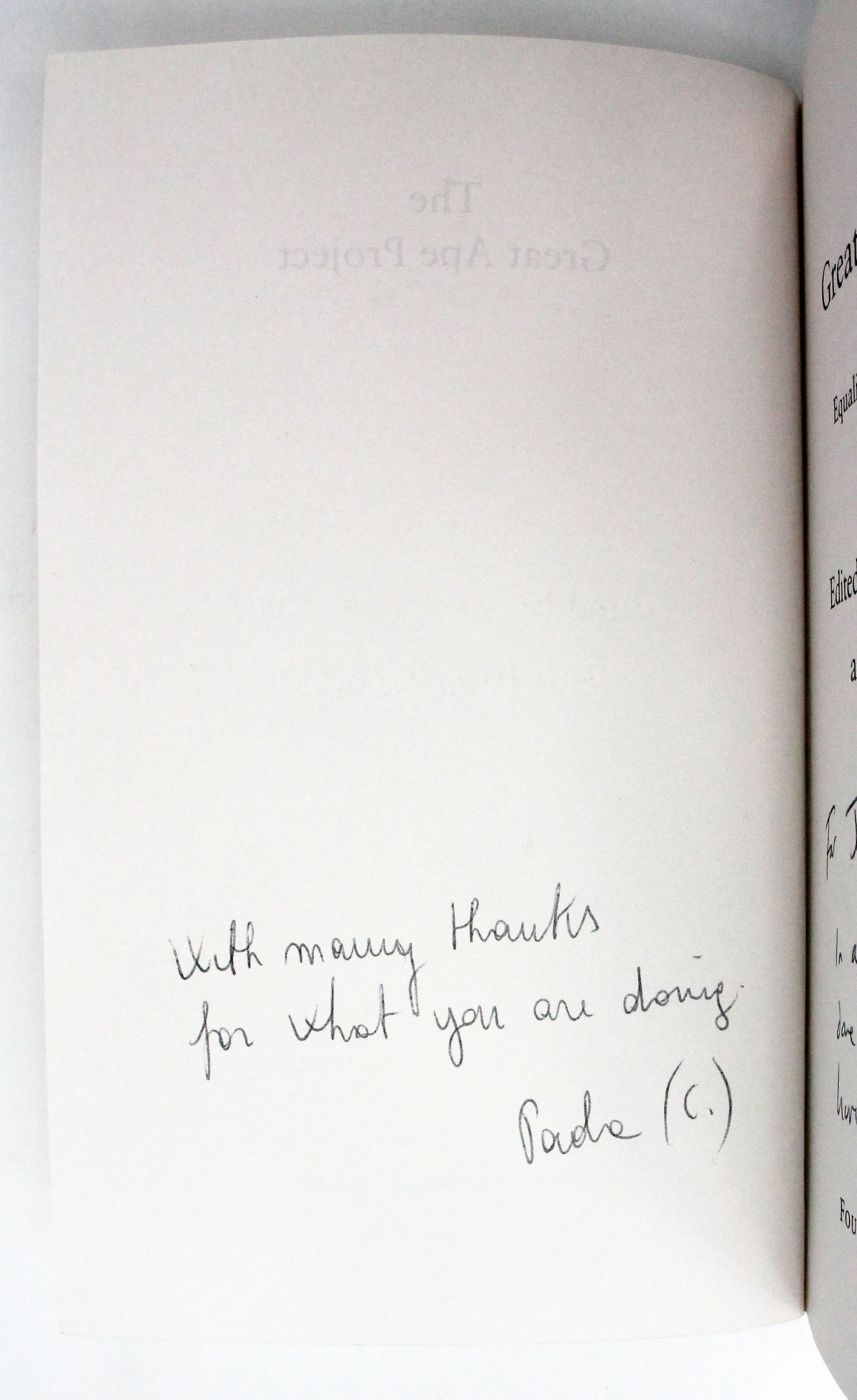 The
Great Ape Project
With many thanks
for what you are doing.
Paola (C.)
Great
Equali
Edited
a
In a
Fou